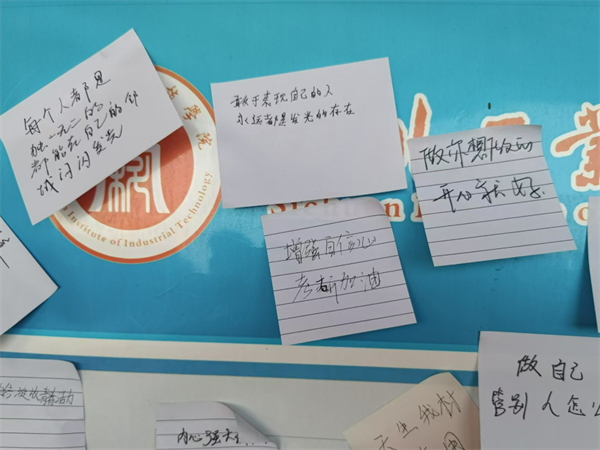 每个人都是
独一无二的
都能在自己的领
域闪闪发光
敢于表现自己的人
永远都是发光的存在
做你想做的
开心就好
增强自信心
考研加油
Institute of Industrial Technology
做自己
管别人怎么
内心强大
天生我材